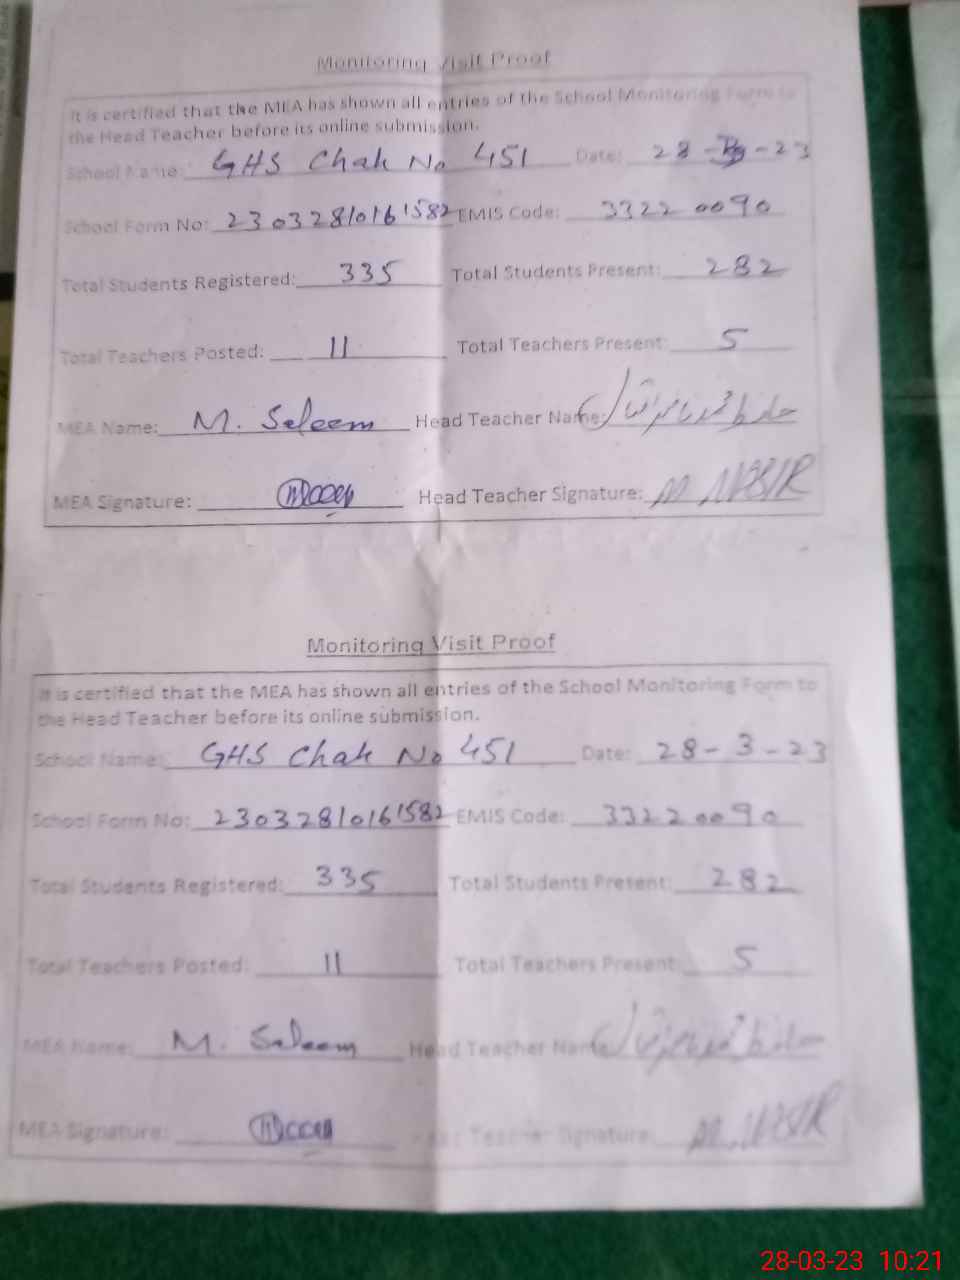 Monitoring Visit Proof
It is certified that the MEA has shown all entries of the School Monitoring Form to
the Head Teacher before its online submission.
School Name: GHS Chak No 451 Date: 28 - - 23
School Form No: 230328101611582 EMIS Code: 33220090
Total Students Registered: 335 Total Students Present: 282
Total Teachers Posted: 11 Total Teachers Present: 5
MEA Name: M. Saleem Head Teacher Name: حافظ محمد ناصر اقبال
MEA Signature: Head Teacher Signature: M NASIR
Monitoring Visit Proof
It is certified that the MEA has shown all entries of the School Monitoring Form to
the Head Teacher before its online submission.
School Name: GHS Chak No 451 Date: 28 - 3 - 23
School Form No: 230328101611582 EMIS Code: 33220090
Total Students Registered: 335 Total Students Present: 282
Total Teachers Posted: 11 Total Teachers Present: 5
MEA Name: M. Saleem Head Teacher Name: حافظ محمد ناصر اقبال
MEA Signature: Head Teacher Signature: M. NASIR
28-03-23 10:21